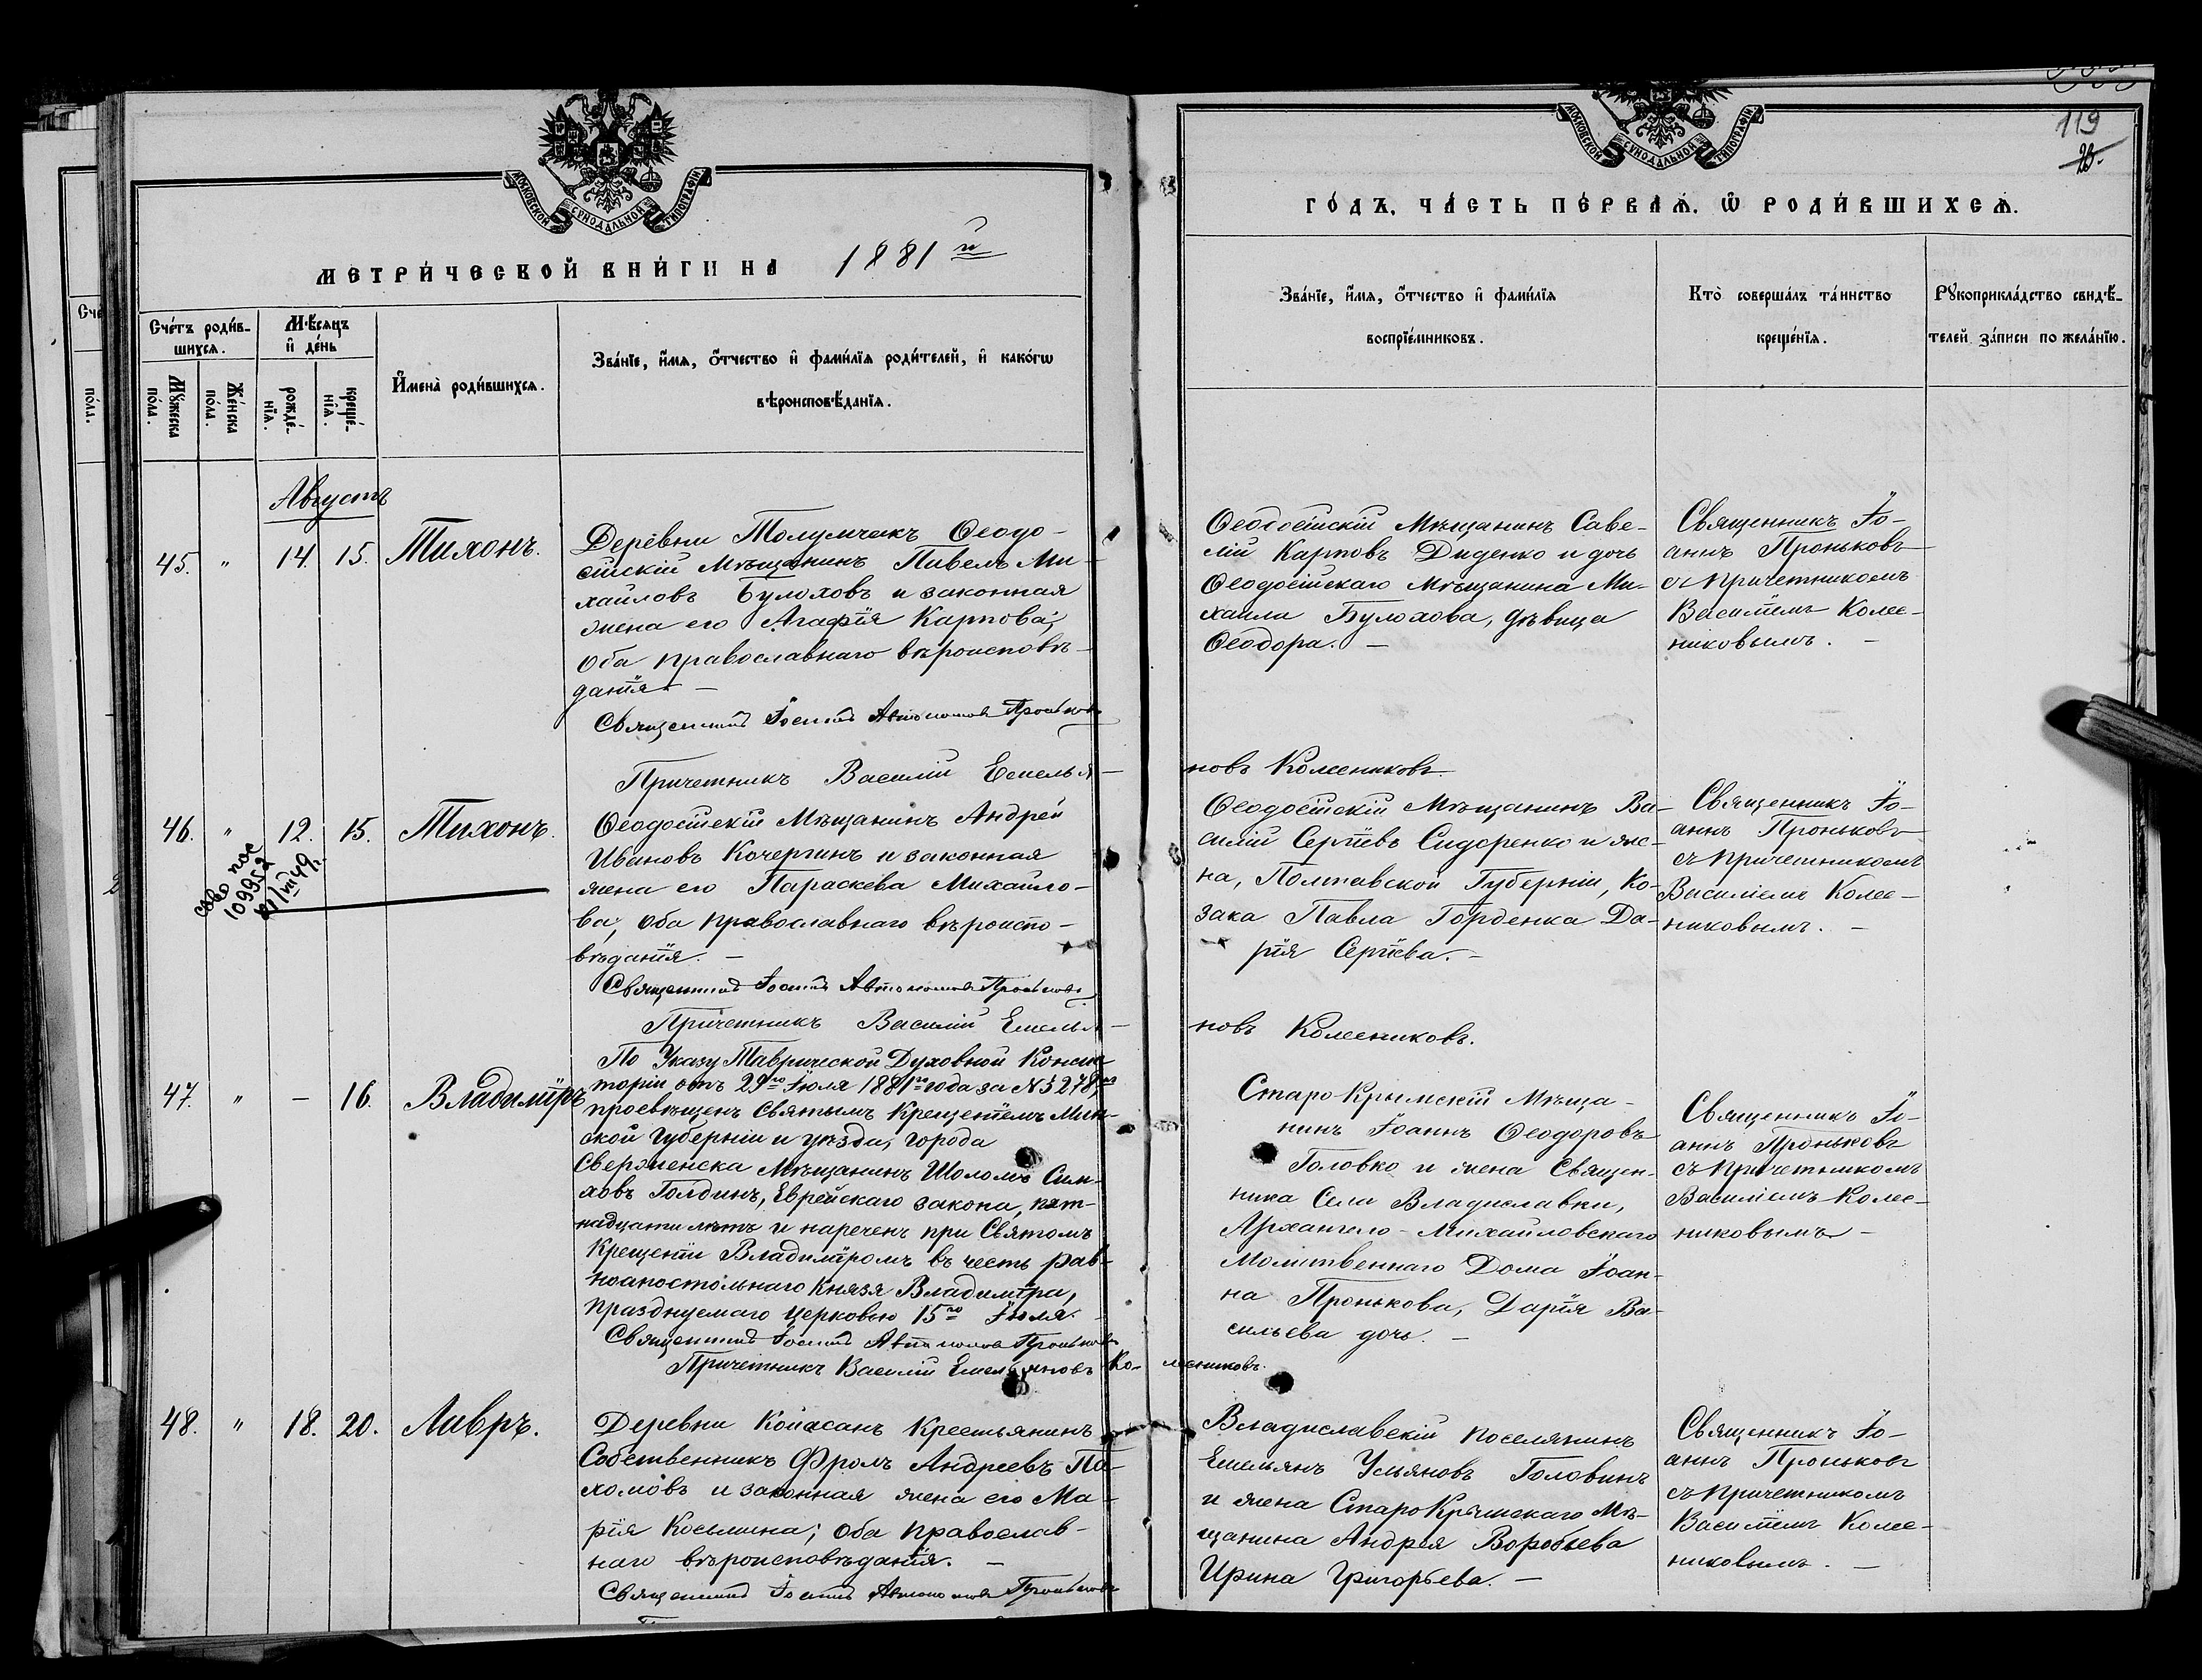 МОСКОВСКОЙ СѴНОДАЛЬНОЙ ТИПОГРАФІИ
МЕТРИ́ЧЕСКОЙ КНИ́ГИ НА 1881й
Сче́тъ роди́в-
шихсѧ.
Мѣ́сѧцъ
и҆ де́нь
Мꙋ́жеска
по́ла.
Же́нска
по́ла.
рожде́-
нїѧ.
креще́-
нїѧ.
И҆мена̀ роди́вшихсѧ.
Зва́нїе, и҆́мѧ, ѻ҆́тчество и҆ фами́лїѧ роди́телей, и҆ како́гѡ
вѣроисповѣ́данїѧ.
Августъ
45. " 14. 15. Тихонъ.
Деревни Толумчакъ Ѳеодо-
сійскій Мѣщанинъ Павелъ Ми-
хайловъ Булоховъ и законная
жена его Агафія Карпова;
оба православнаго вѣроисповѣ-
данія. —
Священникъ Іоаннъ Автономовъ Проньковъ
Причетникъ Василій Емелья-
46. " 12. 15. Тихонъ.
109952
Ѳеодосійскій Мѣщанинъ Андрей
Ивановъ Кочергинъ и законная
жена его Параскева Михайло-
ва, оба православнаго вѣроиспо-
вѣданія. —
Священникъ Іоаннъ Автономовъ Проньковъ
Причетникъ Василій Емелья-
47. " — 16. Владиміръ
По Указу Таврической Духовной Консис
торіи отъ 29го Іюля 1881го года за №5278,
просвѣщенъ Святымъ Крещеніемъ Мин-
ской губерніи и уѣзда, города
Сверженска Мѣщанинъ Шоломъ Сим-
ховъ Голдинъ, Еврейскаго закона, пят-
надцати лѣтъ и нареченъ при Святомъ
Крещеніи Владиміромъ въ честь рав-
ноапостольнаго Князя Владиміра,
празднуемаго церковью 15го Іюля.
Священникъ Іоаннъ Автономовъ Проньковъ
Причетникъ Василій Емельяновъ Ко-
48. " 18. 20. Лавръ.
Деревни Койасанъ Крестьянинъ
Собственникъ Фролъ Андреевъ Па-
хомовъ и законная жена его Ма-
рія Косьмина; оба православ-
наго вѣроисповѣданія. —
Священникъ Іоаннъ Автономовъ Проньковъ
МОСКОВСКОЙ СѴНОДАЛЬНОЙ ТИПОГРАФІИ
119
28.
ГО́ДЪ, ЧА́СТЬ ПЕ́РВАѦ, Ѡ҆ РОДИ́ВШИХСѦ.
Зва́нїе, и҆́мѧ, ѻ҆́тчество и҆ фами́лїѧ
воспрїе́мниковъ.
Кто̀ соверша́лъ та́инство
креще́нїѧ.
Рꙋкоприкла́дство свидѣ́-
телей за́писи по жела́нїю.
Ѳеодосійскій Мѣщанинъ Саве-
лій Карповъ Диденко и дочь
Ѳеодосійскаго Мѣщанина Ми-
хаила Булохова, дѣвица
Ѳеодора. —
Священникъ Іо-
аннъ Проньковъ
съ Причетникомъ
Василіемъ Колес-
никовымъ. —
новъ Колесниковъ.
Ѳеодосійскій Мѣщанинъ Ва-
силій Сергіевъ Сидоренко и же-
на, Полтавской Губерніи, Ко-
зака Павла Горденка Да-
рія Сергіева. —
Священникъ Іо-
аннъ Проньковъ
съ Причетникомъ
Василіемъ Колес-
никовымъ. —
новъ Колесниковъ.
Старо-Крымскій Мѣща-
нинъ Іоаннъ Ѳеодоровъ
Головко и жена Священ-
ника Села Владиславки,
Архангело-Михайловскаго
Молитвеннаго Дома Іоан-
на Пронькова, Дарія Ва-
сильева дочь. —
Священникъ Іо-
аннъ Проньковъ
съ Причетникомъ
Василіемъ Колес-
никовымъ —
лесниковъ.
Владиславскій поселянинъ
Емельянъ Ульяновъ Головинъ
и жена Старо Крымскаго Мѣ-
щанина Андрея Воробьева
Ирина Григорьева. —
Священникъ Іо-
аннъ Проньковъ
съ Причетникомъ
Василіемъ Колес-
никовымъ. —